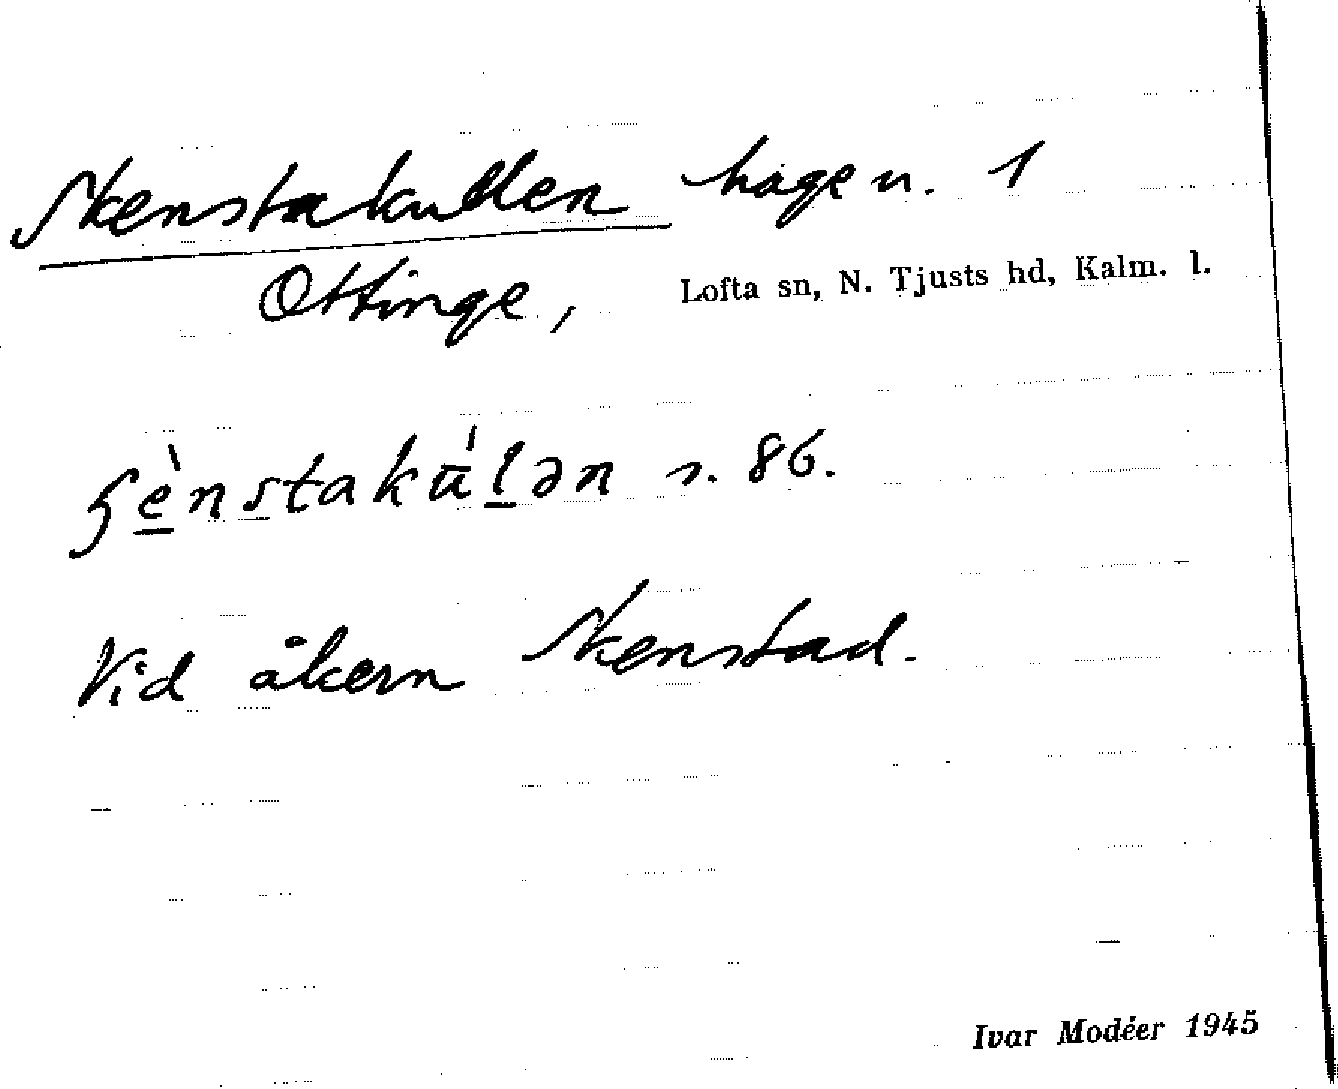 Skenstakullen hage n. 1
Ottinge, Lofta sn, N. Tjusts hd, Kalm. l.
ʂènstakúlən s. 86.
Vid åkern Skenstad.
Ivar Modéer 1945